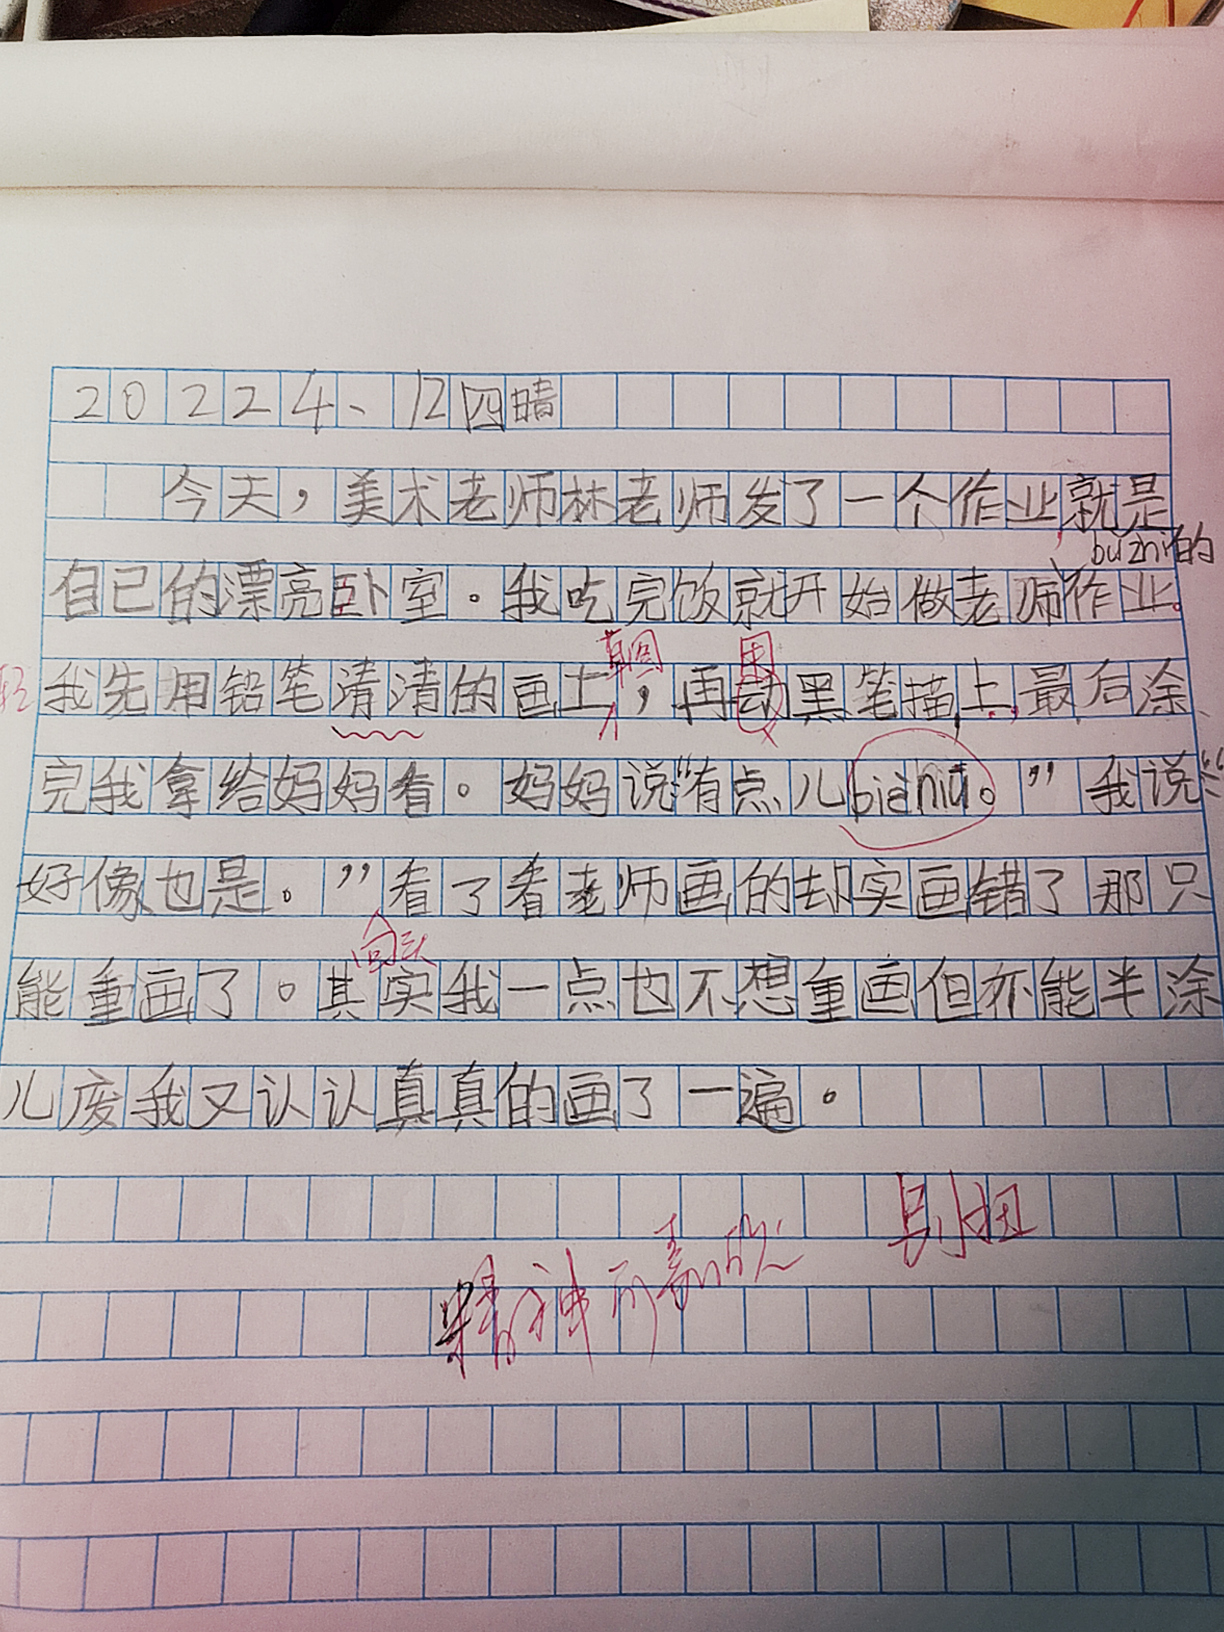 20224、12四晴
今天，美术老师林老师发了一个作业,就是
buzhi的
自己的漂亮卧室。我吃完饭就开始做老师作业。
草图 用
轻 我先用铅笔清清的画上，再动黑笔描上,最后涂
完我拿给妈妈看。妈妈说“有点儿bièniu。”我说“
好像也是。”看了看老师画的却实画错了那只
回头
能重画了。其实我一点也不想重画但亦能半涂
儿废我又认认真真的画了一遍。
别扭
精神可嘉